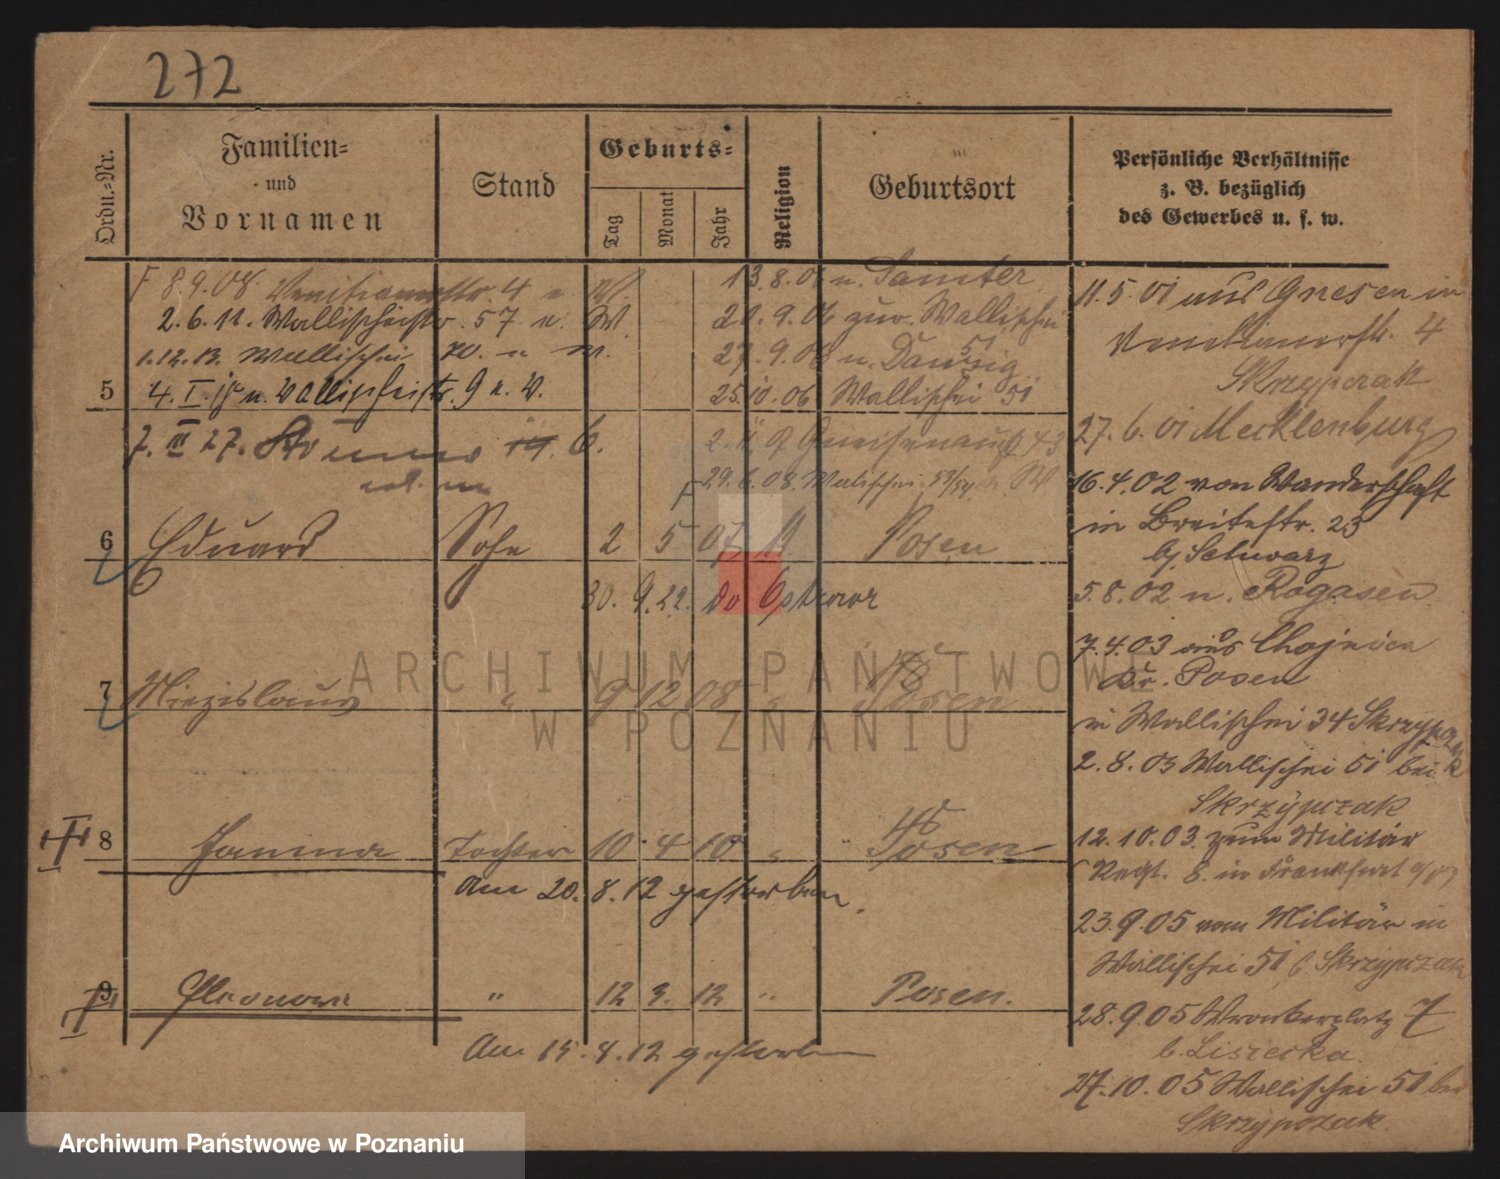 272
Ordn.-Nr.
Familien-
und
Vornamen
Stand
Geburts-
Tag
Monat
Jahr
Religion
Geburtsort
Persönliche Verhältnisse
z. B. bezüglich
des Gewerbes u. s. w.
8.9.08. Venetianerstr. 4 n. W.
2.6.11. Wallischeistr. 57 n. W
1.12.13. Wallischei 70. n W.
5
4. I. 15 n. Wallischeistr. 9 n. W.
7. III 27. 6.
13.8.01 n. Samter
20.9.06 zur. Wallischei
51
27.9.06 n. Danzig
25.10.06 Wallischei 51
Gneisenaustr 43
29.6.08. Wallischei 53/54 W
6 Eduard Sohn 2 5 07 Posen
30. 9. 22. do Ostrow
7 Miezislaus " 9 12 08 " Posen
8 Janina Tochter 10 4 10 " Posen
Am 20. 8. 12 gestorben.
9 Eleonore " 12 3. 12 " Posen.
Am 15. 8. 12 gestorben
11.5.01 aus Gnesen in
Venetianerstr. 4
Skrzypczak
27.6.01 Mecklenburg
16.4.02 von Wanderschaft
in Breitestr. 23
bj Schwarz
5.8.02 n. Rogasen
7.4.03 aus Chojnica
Kr. Posen
in Wallischei 34 Skrzypczak
2.8.03 Wallischei 51 bei
Skrzypczak
12.10.03. zum Militär
Regt. 8. in Frankfurt a/O
23.9.05 vom Militär in
Wallischei 51 b. Skrzypczak
28.9.05 Wronkerplatz 7
b. Lisiecka
27.10.05 Wallischei 51 bei
Skrzypczak
ARCHIWUM PAŃSTWOWE
W POZNANIU
Archiwum Państwowe w Poznaniu